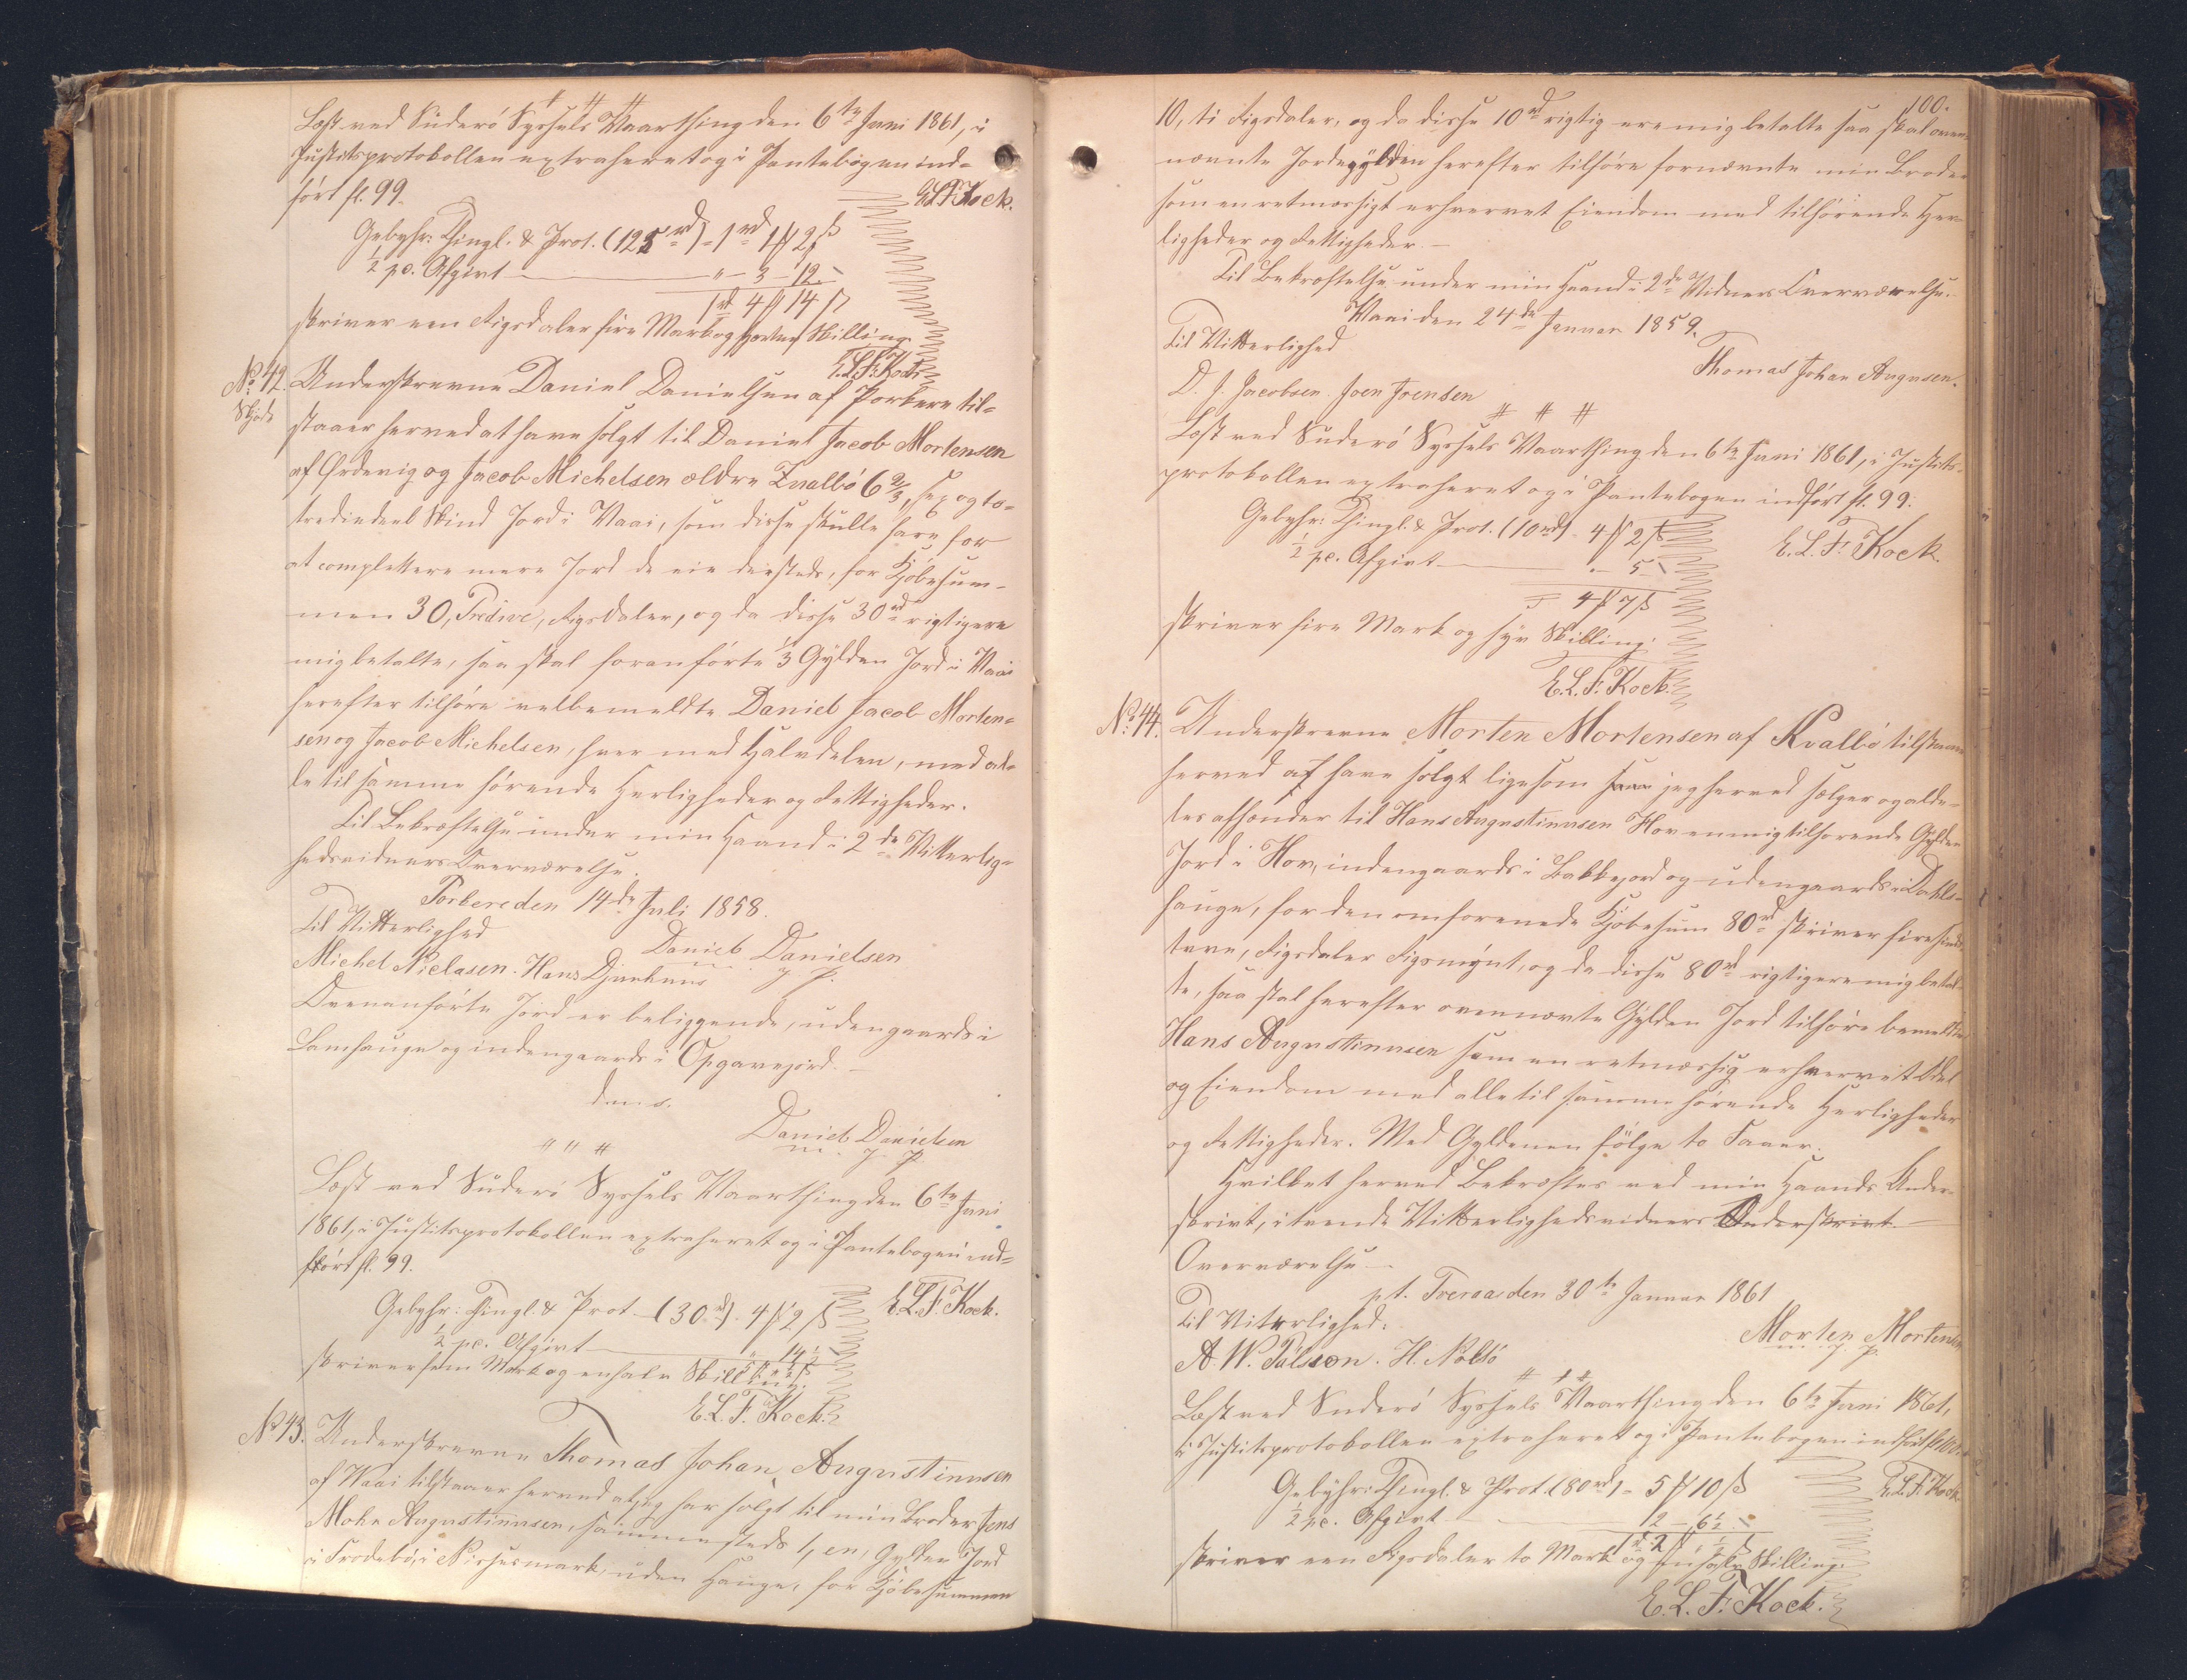 Læst ved Suderö Syssels Vaarthing den 6te Juni 1861, i
Justitsprotokollen extraheret og i Pantebogen ind=
fört fl. 99.
E.L.F. Kock.
Gebyhr: Thingl. & Prot. (125 rd) = 1 rd 1 ꟻ 2 ß
½ pc. Afgivt — " — 3 — 12 -
1 rd 4 ꟻ 14 ß
skriver een Rigsdaler fire Mark og fjorten Skilling
E.L.F. Kock.
No 42.
Skjöde
Underskrevne Daniel Danielsen af Porkere til=
staaer herved at have solgt til Daniel Jacob Mortensen
af Ördevig og Jacob Michelsen ældre Qvalbö 6 2/3, sex og to=
trediedeel Skind Jord i Vaai, som disse skulle have for
at complettere mere Jord de eie dersteds, for Kjöbesum=
men 30, Tredive, Rigsdaler, og da disse 30 rd rigtig ere
mig betalte, saa skal foranförte 1/3 Gylden Jord i Vaai
herefter tilhöre velbemeldte Daniel Jacob Morten=
sen og Jacob Michelsen, hver med Halvdelen, med al=
le til samme hörende Herligheder og Rettigheder.
Til Bekræftelse under min Haand i 2de Vitterlig=
hedsvidners Overværelse.
Porkere den 14de Juli 1858.
Til Vitterlighed
Daniel Danielsen
Michel Nielasen. Hans Djonhuus
Ovenanförte Jord er beliggende, udengaards i
Lamhauge og indengaards i Opgavejord. —
d.u.s.
Daniel Danielsen
m. p. p.
Læst ved Suderö Syssels Vaarthing den 6te Juni
1861, i Justitsprotokollen extraheret og i Pantebogen ind=
fört fl. 99.
E.L.F. Kock.
Gebyhr: Thingl. & Prot. (30 rd) 4 ꟻ 2 ß
½ pc. Afgivt — " 14½
skriver fem Mark og en halv Skilling.
E.L.F. Kock.
No 43.
Underskrevne Thomas Johan Augustinusen
af Vaai tilstaaer herved at jeg har solgt til min Broder Jens
Mohr Augustinusen, sammesteds 1, en, Gylden Jord
i Frodebö, i Nirhusmark, uden Hauge, for Kjöbesummen
100.
10, ti Rigsdaler, og da disse 10 rd rigtig ere mig betalte saa skal oven=
nævnte Jordegylden herefter tilhöre fornævnte min Broder
som en retmæssigt erhvervet Eiendom med tilhörende Her=
ligheder og Rettigheder. —
Til Bekræftelse under min Haand i 2de Vidners Overværelse.
Vaai den 24de Januar 1859.
Til Vitterlighed
Thomas Johan Augusen.
D. J. Jacobsen. Joen Joensen
Læst ved Suderö Syssels Vaarthing den 6te Juni 1861, i Justits=
protokollen extraheret og i Pantebogen indfört fl. 99.
Gebyhr: Thingl. & Prot. (10 rd) 4 ꟻ 2 ß
E.L.F. Kock.
½ pc. Afgivt — " — 5 -
4 ꟻ 7 ß
skriver fire Mark og syv Skilling.
E.L.F. Kock.
No 44.
Underskrevne Morten Mortensen af Kvalbö tilstaaer
herved at have solgt ligesom jeg herved sælger og alde=
les afhænder til Hans Augustinusen Hov en mig tilhorende Gylden
Jord i Hov, indengaards i Bakkejord og udengaards i Dahls=
hauge, for den omforenede Kjöbesum 80 rd skriver firesinds=
tyve, Rigsdaler Rigsmynt, og da disse 80 rd rigtig ere mig betal=
te, saa skal herefter ovennævte Gylden Jord tilhöre bemeldte
Hans Augustinusen som en retmæssig erhvervet Odel
og Eiendom med alle til samme hörende Herligheder
og Rettigheder. Med Gyldenen fölge to Faaer.
Hvilket herved Bekræftes ved min Haands Under=
skrivt, i tvende Vitterlighedsvidners Underskrivt. —
Overværelse —
pt. Tveraa den 30te Januar 1861
Til Vitterlighed:
Morten Mortensen
m. p. p.
A. W. Pålsson. H. Nolsö
Læst ved Suderö Syssels Vaarthing den 6te Juni 1861,
i Justitsprotokollen extraheret og i Pantebogen indfört fl. 100.
Gebyhr: Thingl. & Prot. (80 rd) = 5 ꟻ 10 ß
E.L.F. Kock.
½ pc. Afgivt — 2 — 6½ -
1 rd 2 ꟻ ½ ß
skriver een Rigsdaler to Mark og en halv Skilling.
E.L.F. Kock.